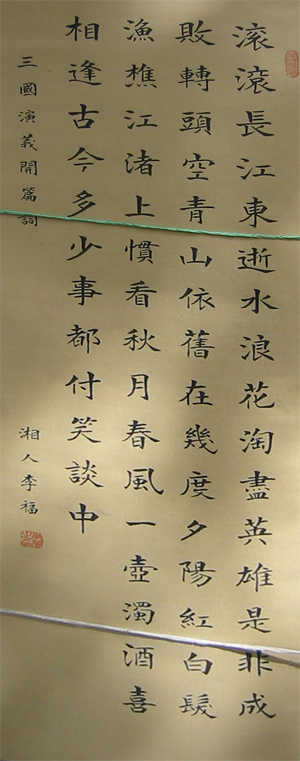 滾滾長江東逝水浪花淘盡英雄是非成
敗轉頭空青山依舊在幾度夕陽紅白髮
漁樵江渚上慣看秋月春風一壺濁酒喜
相逢古今多少事都付笑談中
三國演義開篇詞
湘人李福